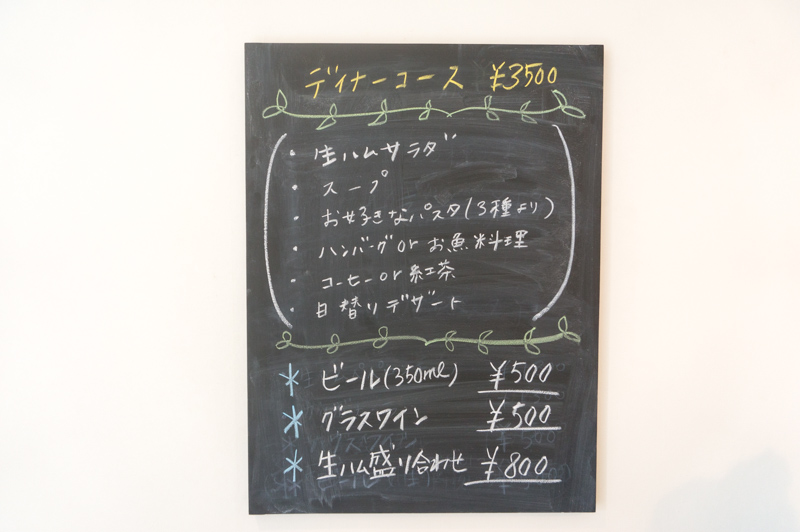 ディナーコース ¥3500
・生ハムサラダ
・スープ
・お好きなパスタ(3種より)
・ハンバーグorお魚料理
・コーヒーor紅茶
・日替りデザート
* ビール(350ml) ¥500
* グラスワイン ¥500
* 生ハム盛り合わせ ¥800